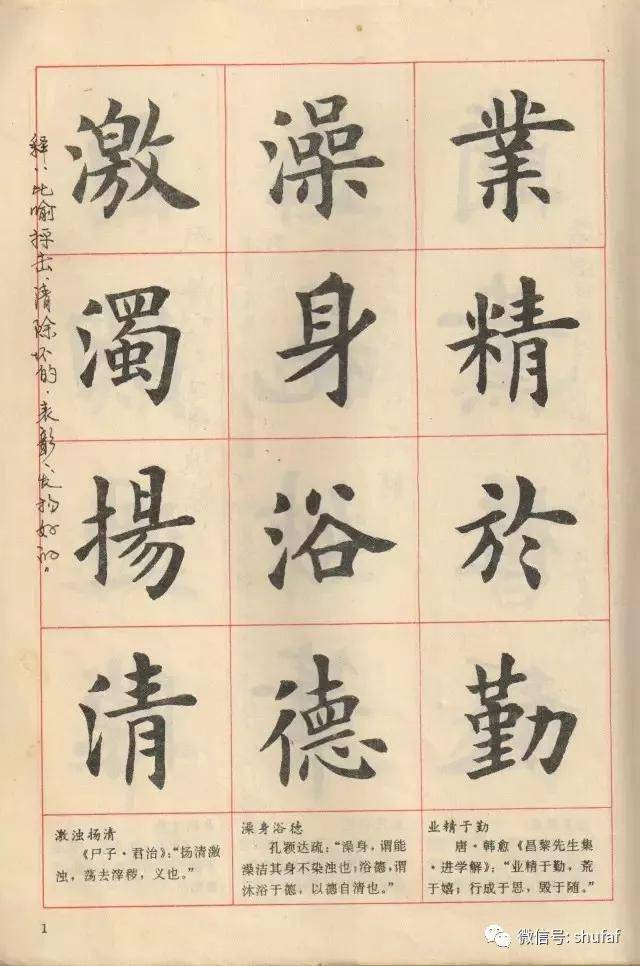 業精於勤
澡身浴德
激濁揚清
释：比喻抨击、清除坏的，表彰、发扬好的。
激浊扬清
《尸子·君治》：“扬清激
浊，荡去滓秽，义也。”
澡身浴德
孔颖达疏：“澡身，谓能
澡洁其身不染浊也；浴德，谓
沐浴于德，以德自清也。”
业精于勤
唐·韩愈《昌黎先生集
·进学解》：“业精于勤，荒
于嬉；行成于思，毁于随。”
1
微信号: shufaf